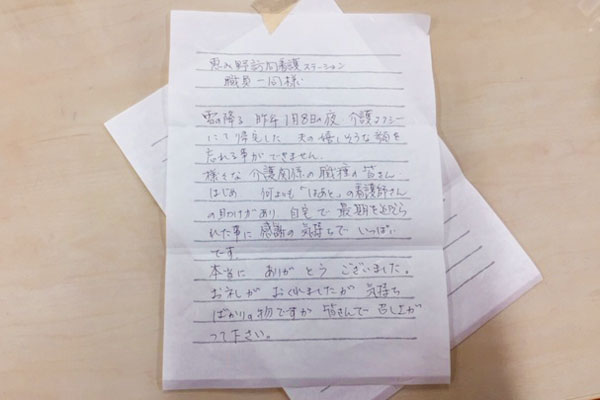 恵み野訪問看護ステーション
職員一同様
雪の降る 昨年1月8日の夜、介護タクシー
にて帰宅した 夫の嬉しそうな顔を
忘れる事ができません。
様々な 介護関係の職種の皆さん
はじめ 何よりも「はあと」の看護師さん
の助けがあり 自宅で 最期を迎えら
れた事に 感謝の気持ちで いっぱい
です。
本当に ありがとう ございました。
お礼が おくれましたが 気持ち
ばかりの物ですが 皆さんで 召し上が
って下さい。